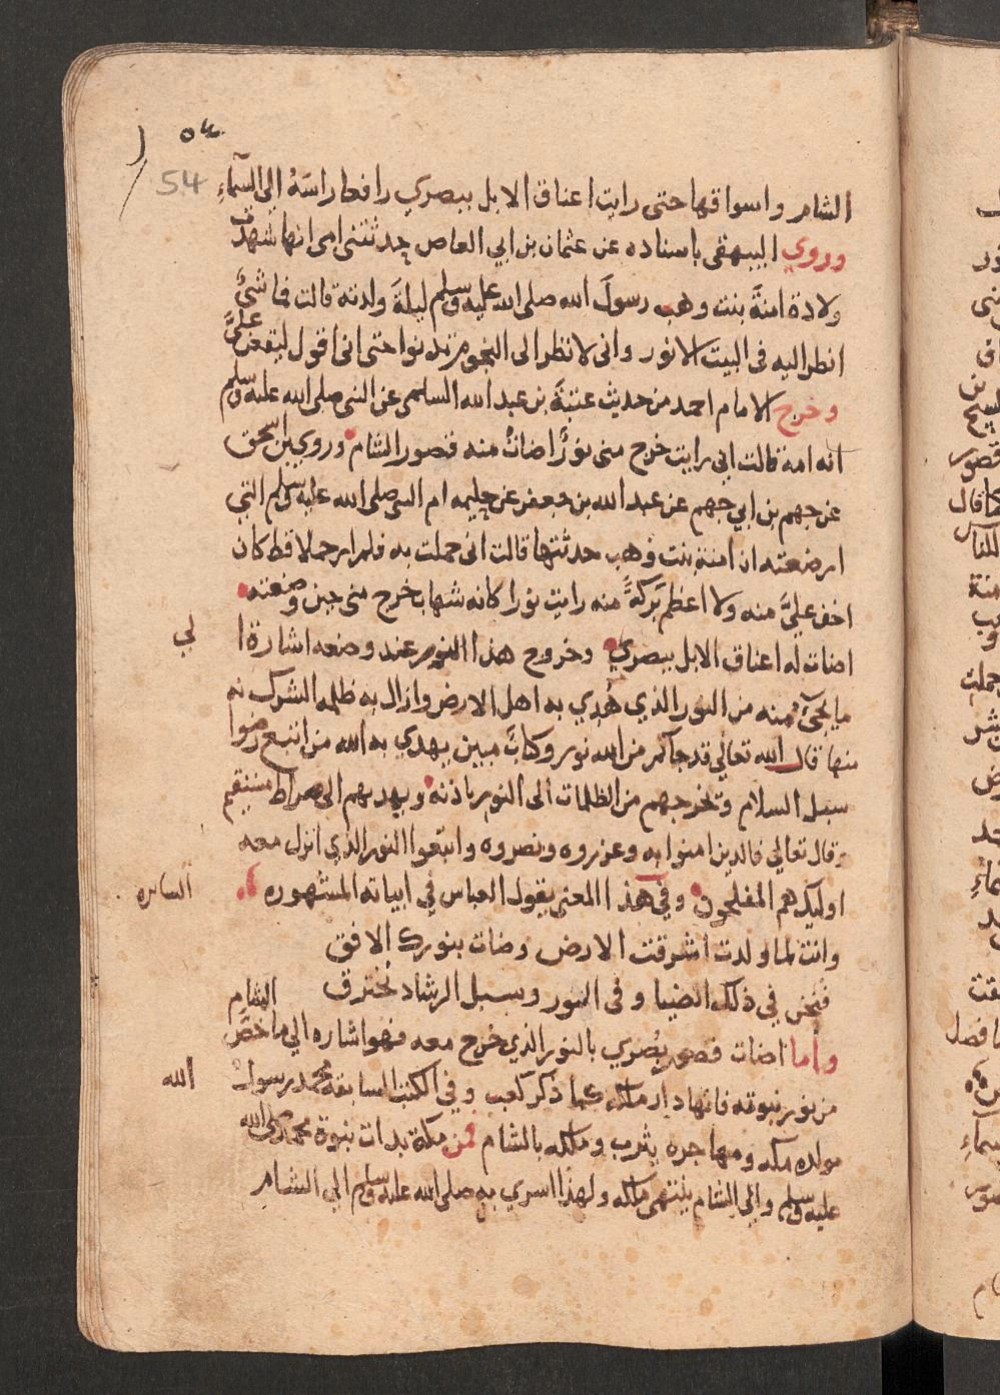 ٥٤
54
الشام واسواقها حتى رايت اعناق الابل ببصري رافعا راسه الي السمآء
وروي البيهقى باسناده عن عثمان بن ابي العاص حدثتنى امى انها شهدت
ولادة امنة بنت وهب رسول الله صلى الله عليه وسلم ليلة ولدته قالت فما شئ
انظر اليه فى البيت الا نور وانى لانظر الى النجوم تدنوا حتى انى اقول ليقعن علىَّ
وخرج الامام احمد من حديث عتبة بن عبد الله السلمى عن النبى صلى الله عليه وسلم
انه امه قالت انى رايت خرج منى نورٌ اضائت منه قصور الشام وروي بن اسحق
عن جهم بن ابي جهم عن عبد الله بن جعفر عن حليمه ام النبى صلى الله عليه وسلم التي
ارضعته ان امنة بنت وهب حدثتها قالت انى حملت به فلم ار حملا قط كان
اخف عليَّ منه ولا اعظم بركةً منه رايت نورا كانه شهاب خرج منى حين وضعته
اضات له اعناق الابل ببصري وخروج هذا النور عند وضعه اشارة ا لي
ما يجئ منه من النور الذي هُدي به اهل الارض وازال به ظلمه الشرك
منها قال الله تعالي قد جاكم من الله نور وكتاب مبين يهدي به الله من اتبع رضوا
سبل السلام وتخرجهم من الظلمات الى النور باذنه ويهديهم الى صراط مستقيم
وقال تعالي فالدين امنوا به وعزروه ونصروه واتبعوا النور الذي انزل معه
اوليك هم المفلحون وفي هذا المعنى يقول العباس في ابياته المشهوره السائره
وانت لما ولدت اشرقت الارض وضات بنورك الافق
فنحن في ذلك الضيا وفى النور وسبل الرشاد نخترق
واما اضات قصور بصري بالنور الذي خرج معه فهو اشاره الي ما خصَّ الشام
من نور نبوته فانها دار ملكه كما ذكر كعب وفي الكتب السابقة محمد رسول الله
مولده مكه ومهاجره يثرب وملكه بالشام فمن مكة بدات بنبوة محمد صلى الله
عليه وسلم والي الشام ينتهى ملكه ولهذا اسري به صلى الله عليه وسلم الي الشام